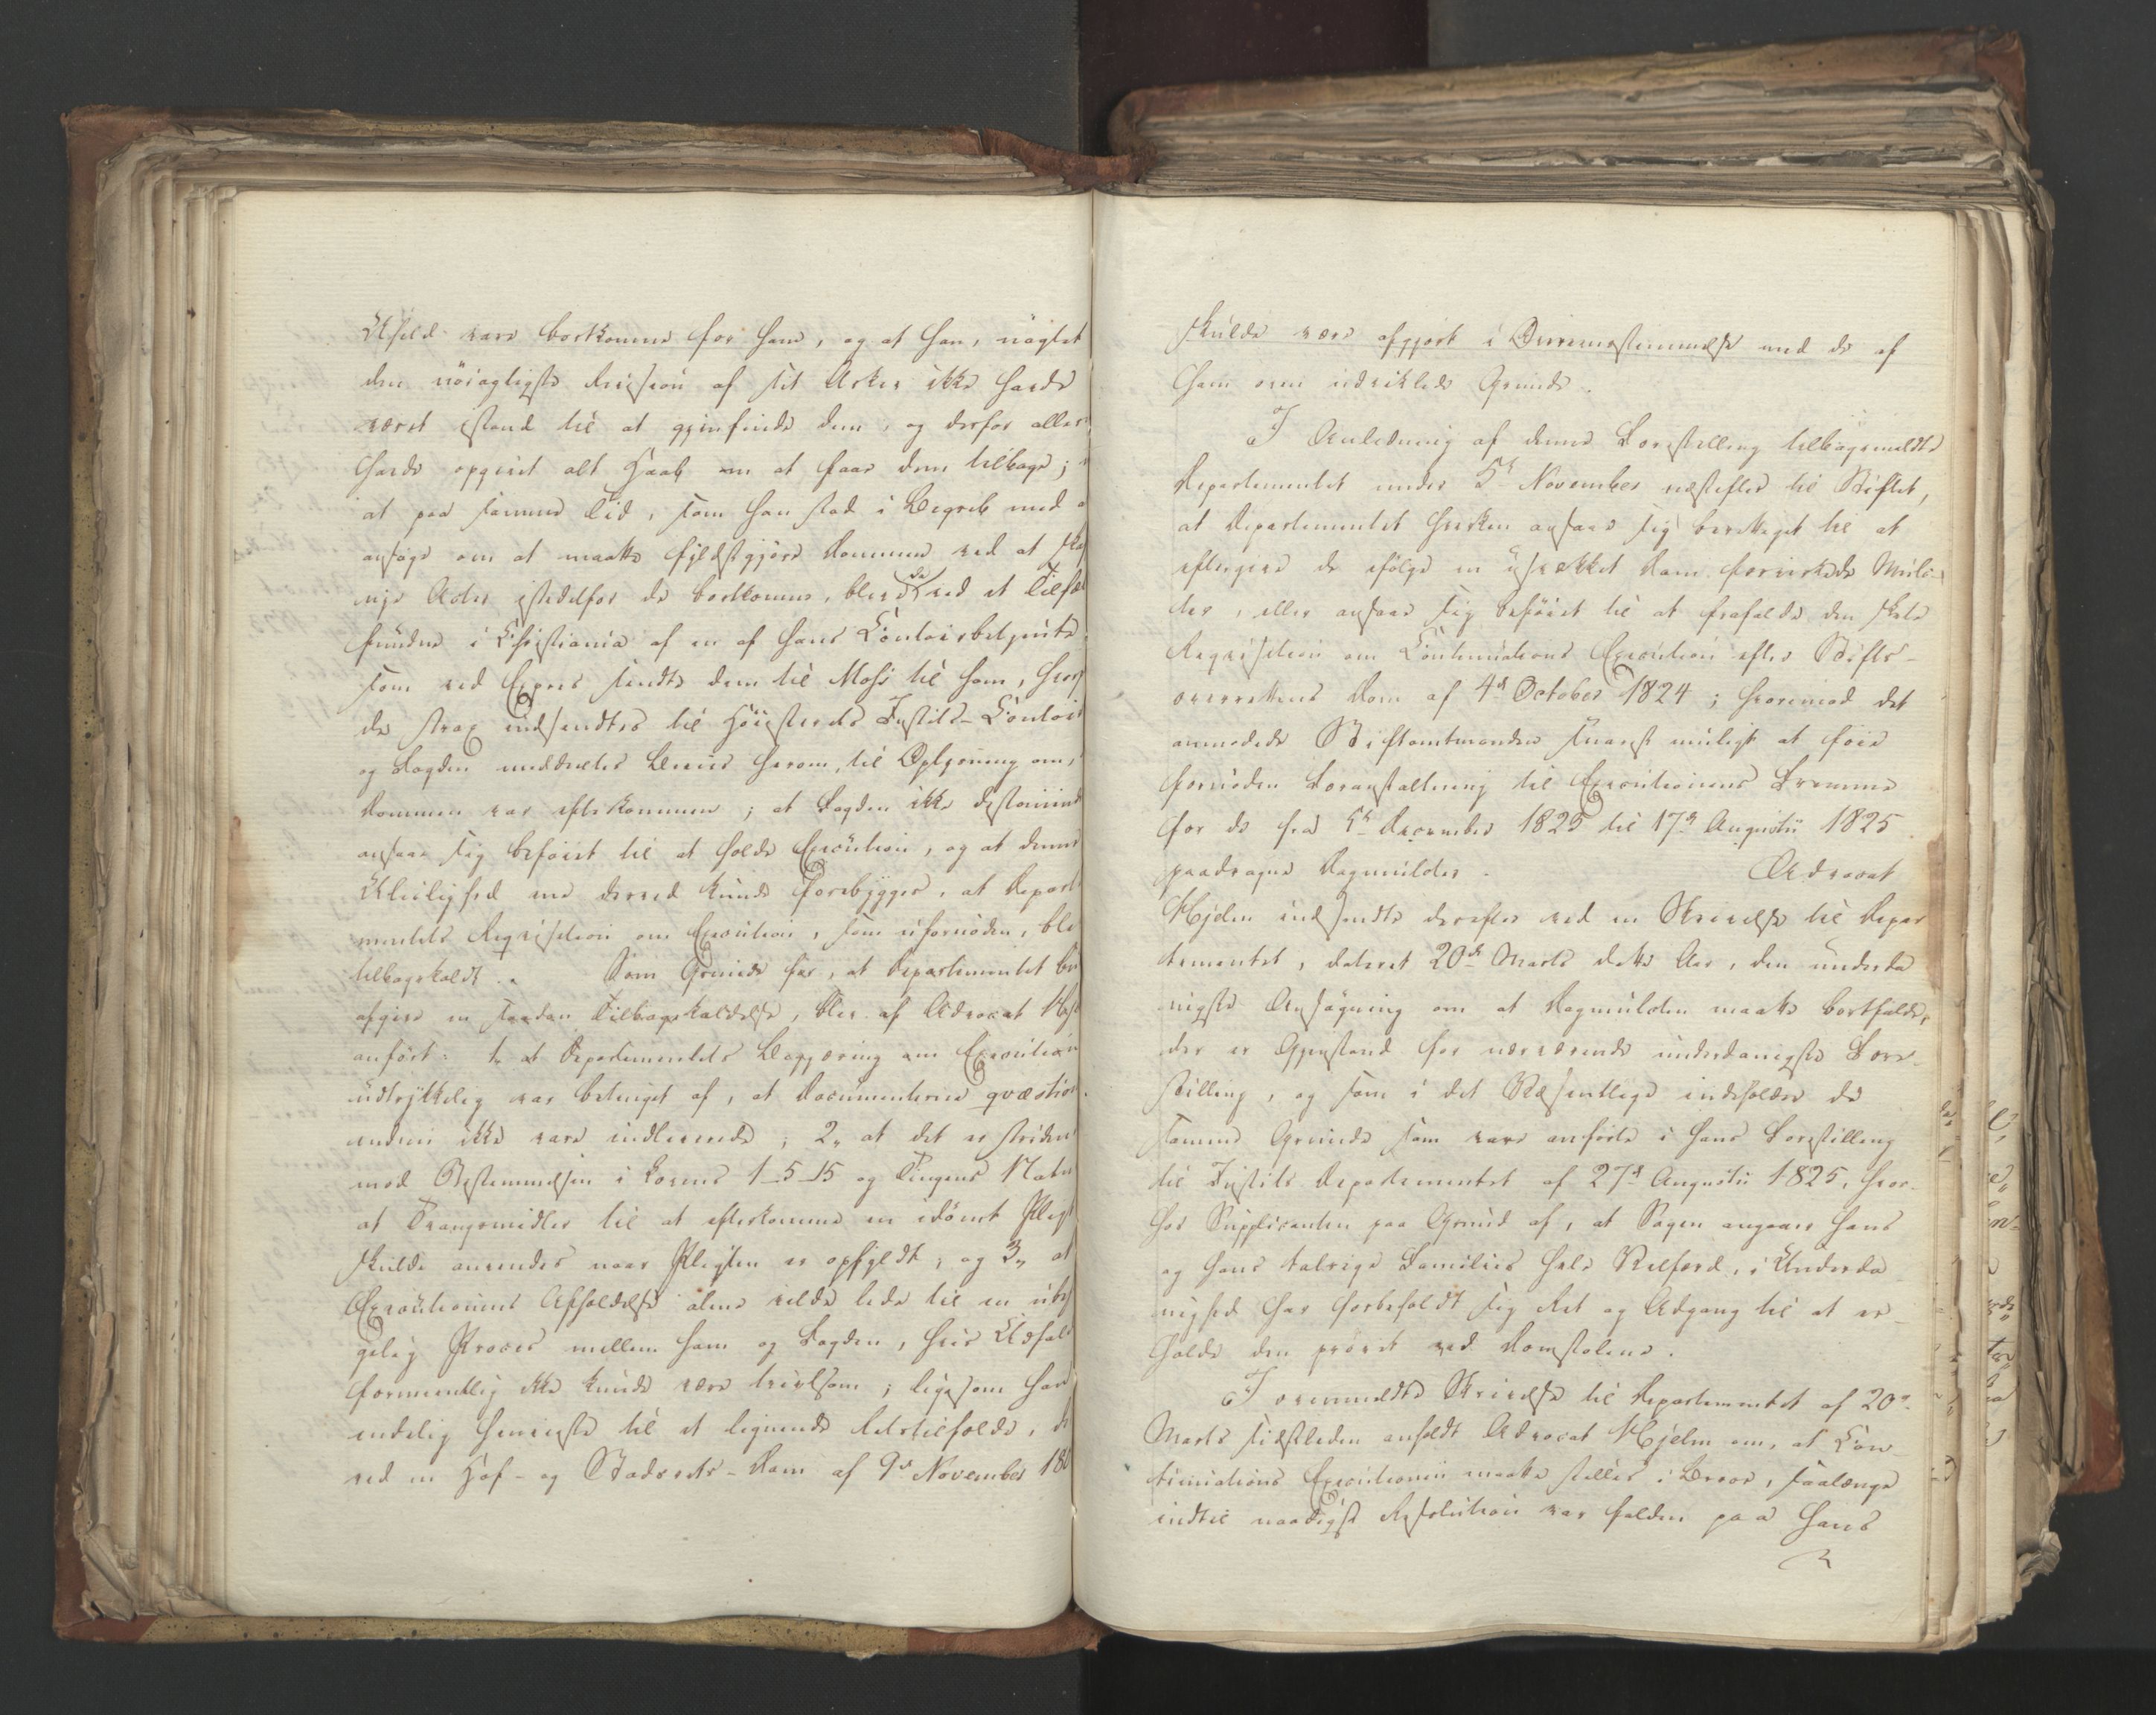 Uheld vare bortkomne for ham, og at han, uagtet
den nöiagtigste Revision af sit Arkiv ikke havde
været istand til at gjenfinde dem, og derfor aller
havde opgivet alt Haab om at faae dem tilbage;
at paa samme Tid, som han stod i Begreb med a
ansøge om at maatte fyldestgjøre Dommen ved at ska
nye Acter istedetfor de bortkomne, bleve de ved et Tilfæl
fundne i Christiania af en af hans Contoirbetjente
som ved Expres sendte dem til Moss til ham, hvor
de strax indsendtes til Höiesterets Justits-Contoir
og Fogden meddeeltes Beviis herom, til Oplysning om,
Dommen var efterkommen; at Fogden ikke destomind
ansaae sig beföiet til at holde Execution, og at denne
Uleilighed ene derved kunde forebygges, at Depart
mentets Reqvisition om Execution, som ufornöden, ble
tilbagekaldt. Som Grunde for, at Departementet bu
afgive en saadan Tilbagekaldelse, blev af Advocat Hje
anfört: 1, at Departementets Begjæring om Execution
udtrykkelig var betinget af, at Documenterne qvæstion
endnu ikke vare indleverede; 2, at det er striden
mod Bestemmelsen i Lovens 1-5-15 og Tingens Natur
at Tvangsmidler til at efterkomme en idömt Pligt
skulde anvendes naar Pligten er opfyldt; og 3, at
Executionens Afholdelse alene vilde lede til en
Proces mellem ham og Fogden, hvis Udfald
formeentlig ikke kunde være tvivlsom; ligesom han
endelig henviiste til et lignende Retstilfælde, d
ved en Hof- og Stadsrets-Dom af 9de November 180
skulde være afgjort i Overeensstemmelse med de af
ham oven udviklede Grunde.
I Anledning af denne Forestilling tilbagemeldte
Departementet under 5te November næstefter til Stiftet,
at Departementet hverken ansaae sig berettiget til at
eftergive de ifölge en Höiesteret Dom forvirkede Mulc-
ter, eller ansaae sig beföiet til at frafalde den skete
Reqvisition om Continuations Execution efter Stifts-
overrettens Dom af 4de October 1824; hvorimod det
anmodede Stiftamtmanden snarest muligt at föie
fornöden Foranstaltning til Executionens Fremme
for de fra 5te December 1825 til 17de Augustii 1825
paadragne Dagmulcter. Advocat
Hjelm indsendte derefter ved en Skrivelse til Depar
tementet, dateret 20de Marts dette Aar, den underda
nigste Ansögning om at Dagmulcten maatte bortfalde,
der er Gjenstand for nærværende underdanigste Fore-
stilling, og som i det Væsentlige indeholder de
samme Grunde som vare anførte i hans Forestilling
til Justits Departementet af 27de Augustii 1825, hvor-
hos Supplicanten paa Grund af, at Sagen angaaer hans
og hans talrige Families hele Velfærd, i Underda
nighed har forbeholdt sig Ret og Adgang til at er-
holde den prövet ved Domstolene.
I ovenmeldte Skrivelse til Departementet af 20de
Marts sidstleden anholdt Advocat Hjelm om, at Con-
tinuations Executionen maatte stilles i Beroe, saalænge
indtil naadigst Resolution var falden paa hans